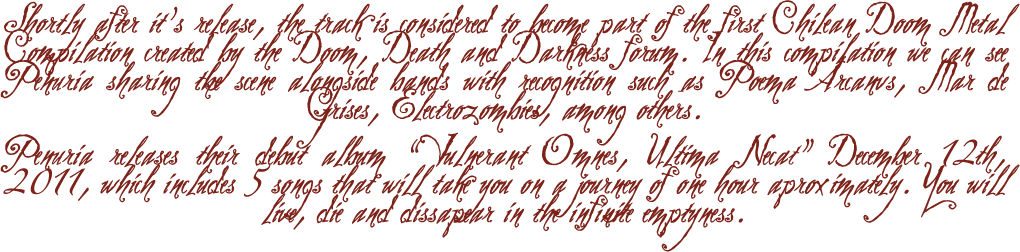 Shortly after it's release, the track is considered to become part of the first Chilean Doom Metal
Compilation created by the Doom, Death and Darkness forum. In this compilation we can see
Penuria sharing the scene alongside bands with recognition such as Poema Arcanus, Mar de
Grises, Electrozombies, among others.
Penuria releases their debut album "Vulnerant Omnes, Ultima Necat" December 12th,
2011, which includes 5 songs that will take you on a journey of one hour aproximately. You will
live, die and dissapear in the infinite emptyness.